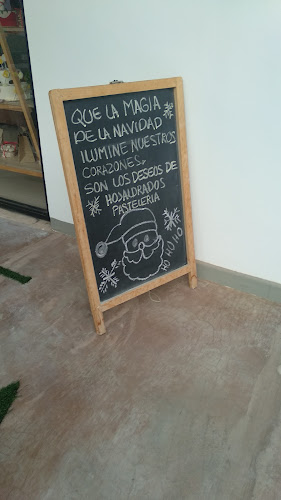 QUE LA MAGIA
DE LA NAVIDAD
ILUMINE NUESTROS
CORAZONES,
SON LOS DESEOS DE
HOJALDRADOS
PASTELERIA
HO HO HO